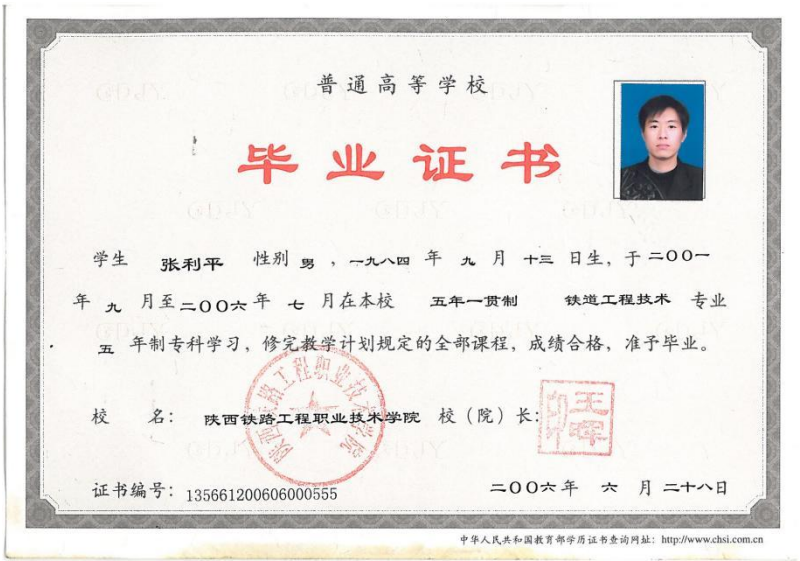 普通高等学校
毕业证书
学生 张利平 性别 男 ,一九八四 年 九 月 十三 日生，于 二〇〇一
年 九 月至 二〇〇六 年 七 月在本校 五年一贯制 铁道工程技术 专业
五 年制专科学习，修完教学计划规定的全部课程，成绩合格，准予毕业。
校 名： 陕西铁路工程职业技术学院 校（院）长：
王晖印
陕西铁路工程职业技术学院
证书编号：135661200606000555 二〇〇六 年 六 月 二十八 日
中华人民共和国教育部学历证书查询网址：http://www.chsi.com.cn